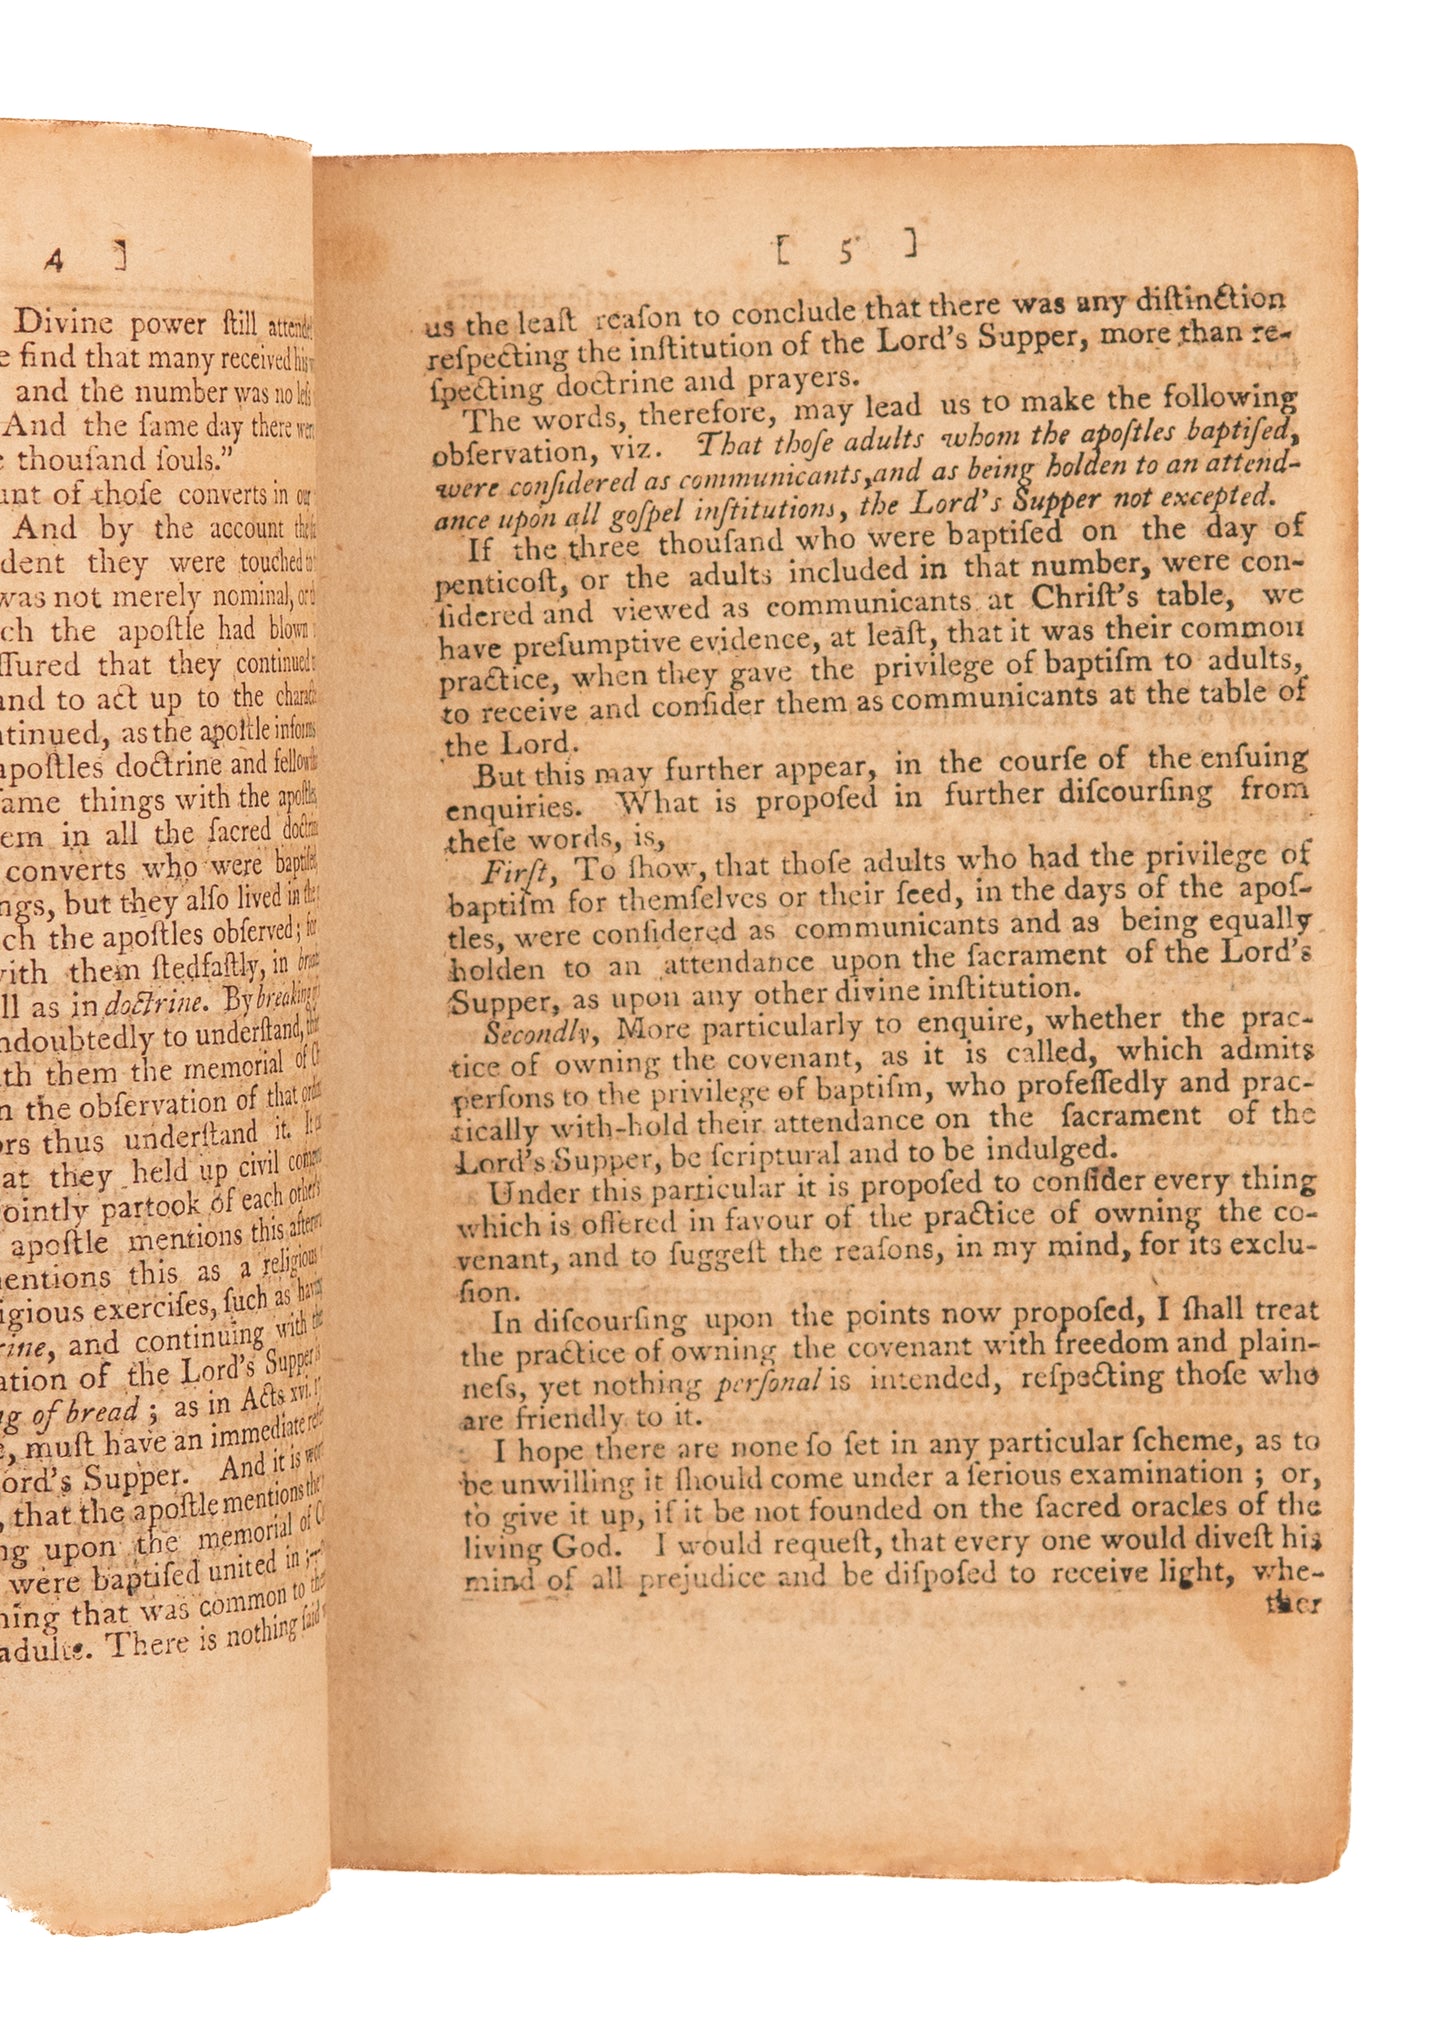 4 ]
Divine power ſtill
find that many received
and the number was no leſs
And the ſame day there
thouſand ſouls.”
of thoſe converts in our
And by the account
they were touched
was not merely nominal,
the apoſtle had blown
that they continued
and to act up to the
as the apoſtle informs
apoſtles doctrine and
things with the
in all the ſacred
converts who were
but they alſo lived in
the apoſtles obſerved; for
with them ſtedfaſtly, in
as in doctrine. By breaking
to underſtand,
them the memorial of
the obſervation of that
thus underſtand it.
at they held up civil
jointly partook of each others
apoſtle mentions this
this as a religious
exerciſes, ſuch as
and continuing with the
of the Lord’s Supper
of bread; as in Acts
muſt have an immediate
Supper. And it is
that the apoſtle mentions
upon the memorial of
were baptiſed united in
that was common to
adults. There is nothing ſaid
[ 5 ]
us the leaſt reaſon to conclude that there was any diſtinction
reſpecting the inſtitution of the Lord’s Supper, more than re-
ſpecting doctrine and prayers.
The words, therefore, may lead us to make the following
obſervation, viz. That thoſe adults whom the apoſtles baptiſed,
were conſidered as communicants, and as being holden to an attend-
ance upon all goſpel inſtitutions, the Lord’s Supper not excepted.
If the three thouſand who were baptiſed on the day of
penticoſt, or the adults included in that number, were con-
ſidered and viewed as communicants at Chriſt’s table, we
have preſumptive evidence, at leaſt, that it was their common
practice, when they gave the privilege of baptiſm to adults,
to receive and conſider them as communicants at the table of
the Lord.
But this may further appear, in the courſe of the enſuing
enquiries. What is propoſed in further diſcourſing from
theſe words, is,
Firſt, To ſhow, that thoſe adults who had the privilege of
baptiſm for themſelves or their ſeed, in the days of the apoſ-
tles, were conſidered as communicants and as being equally
holden to an attendance upon the ſacrament of the Lord’s
Supper, as upon any other divine inſtitution.
Secondly, More particularly to enquire, whether the prac-
tice of owning the covenant, as it is called, which admits
perſons to the privilege of baptiſm, who profeſſedly and prac-
tically with-hold their attendance on the ſacrament of the
Lord’s Supper, be ſcriptural and to be indulged.
Under this particular it is propoſed to conſider every thing
which is offered in favour of the practice of owning the co-
venant, and to ſuggeſt the reaſons, in my mind, for its exclu-
ſion.
In diſcourſing upon the points now propoſed, I ſhall treat
the practice of owning the covenant with freedom and plain-
neſs, yet nothing perſonal is intended, reſpecting thoſe who
are friendly to it.
I hope there are none ſo ſet in any particular ſcheme, as to
be unwilling it ſhould come under a ſerious examination; or,
to give it up, if it be not founded on the ſacred oracles of the
living God. I would requeſt, that every one would diveſt his
mind of all prejudice and be diſpoſed to receive light, whe-
ther